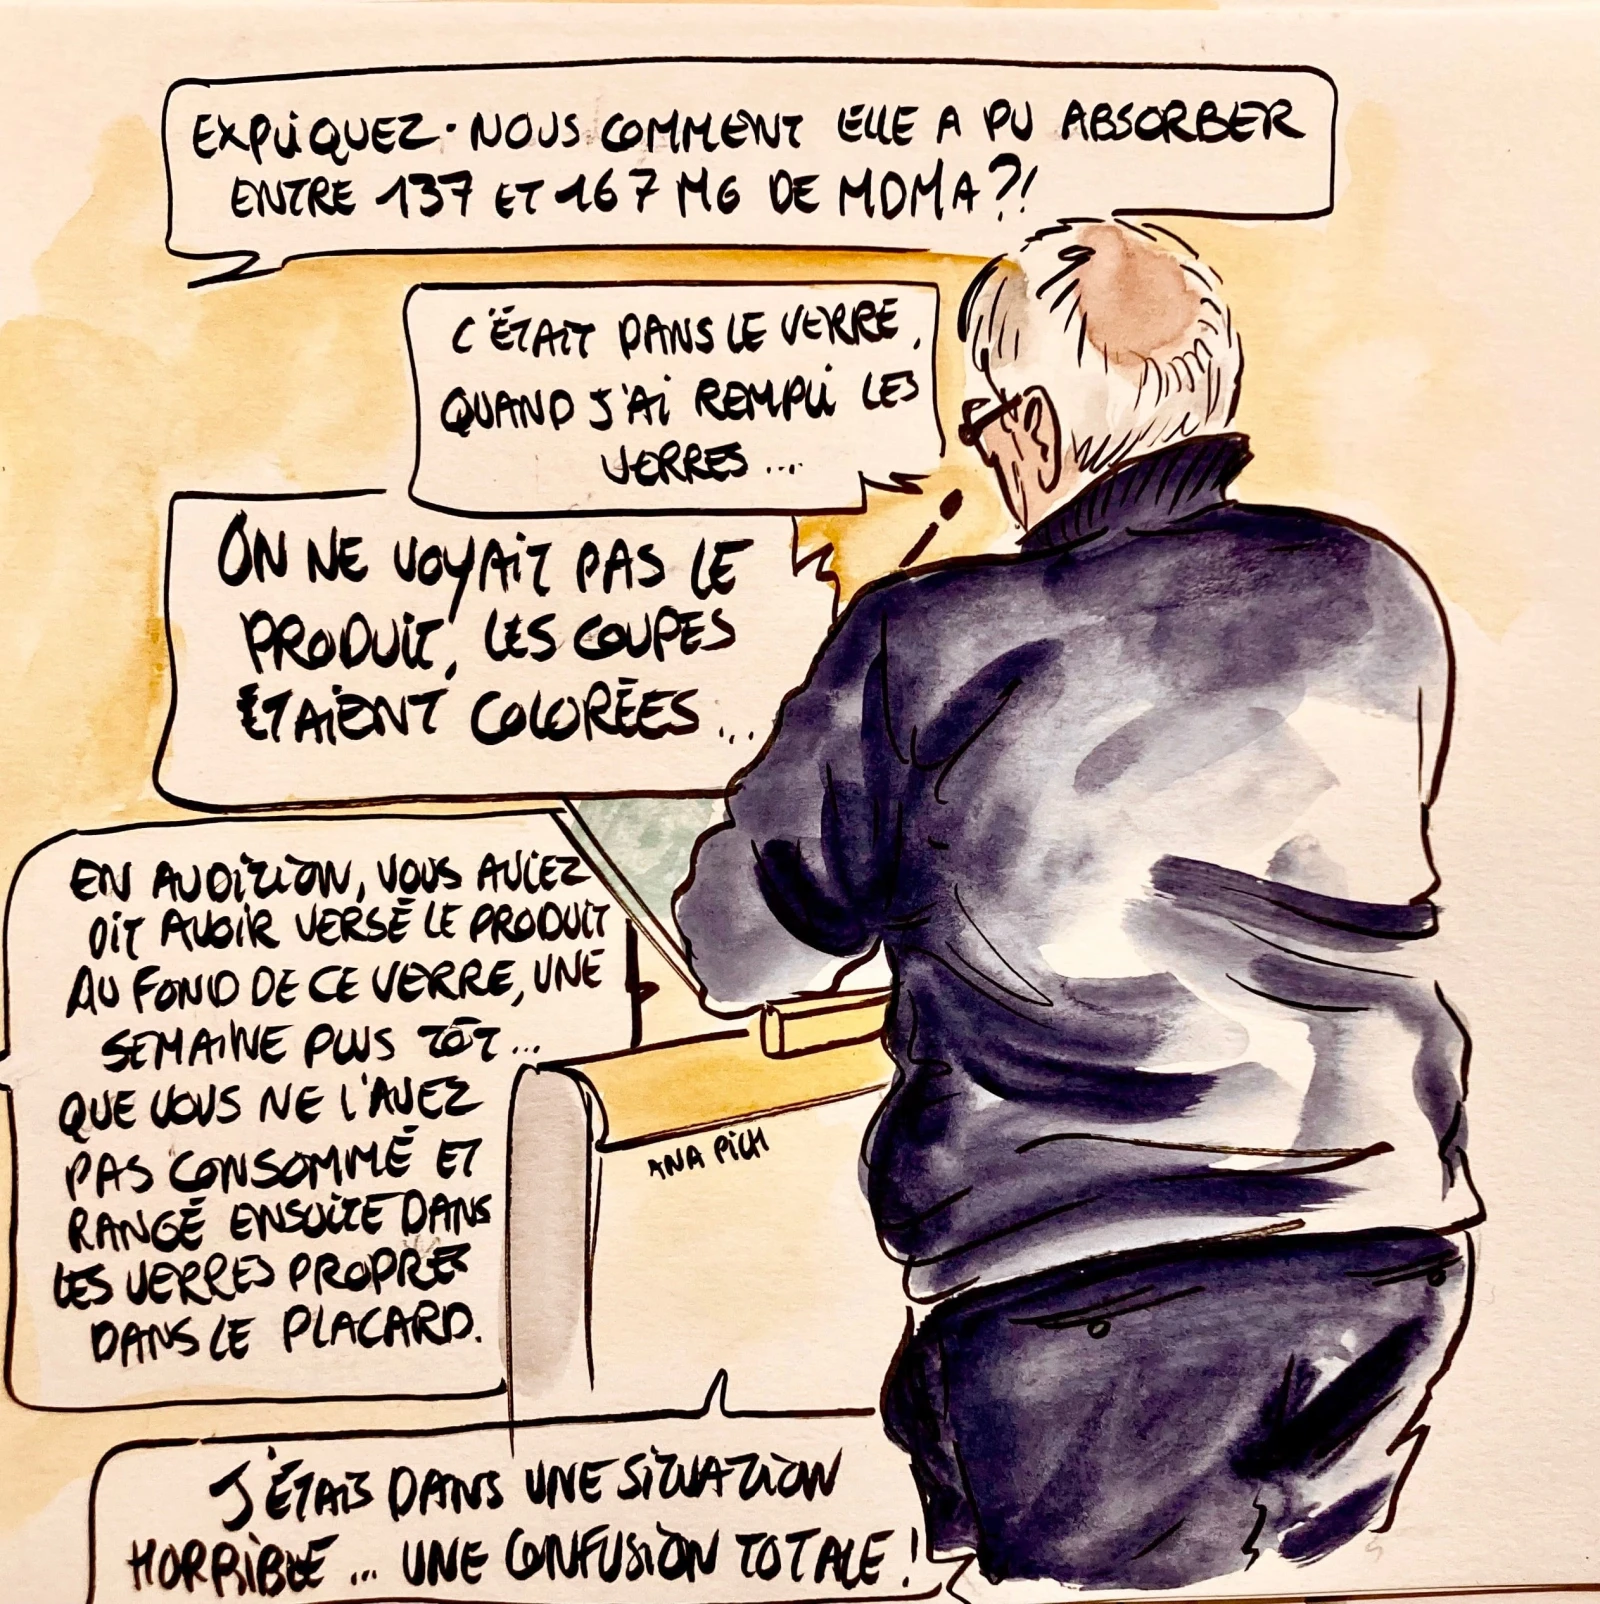 EXPLIQUEZ-NOUS COMMENT ELLE A PU ABSORBER
ENTRE 137 ET 167 MG DE MDMA?!
C'ÉTAIT DANS LE VERRE,
QUAND J'AI REMPLI LES
VERRES...
ON NE VOYAIT PAS LE
PRODUIT, LES COUPES
ÉTAIENT COLORÉES...
EN AUDITION, VOUS AVIEZ
DIT AVOIR VERSÉ LE PRODUIT
AU FOND DE CE VERRE, UNE
SEMAINE PLUS TÔT...
QUE VOUS NE L'AVEZ
PAS CONSOMMÉ ET
RANGÉ ENSUITE DANS
LES VERRES PROPRES
DANS LE PLACARD.
ANA PICH
J'ÉTAIS DANS UNE SITUATION
HORRIBLE... UNE CONFUSION TOTALE!